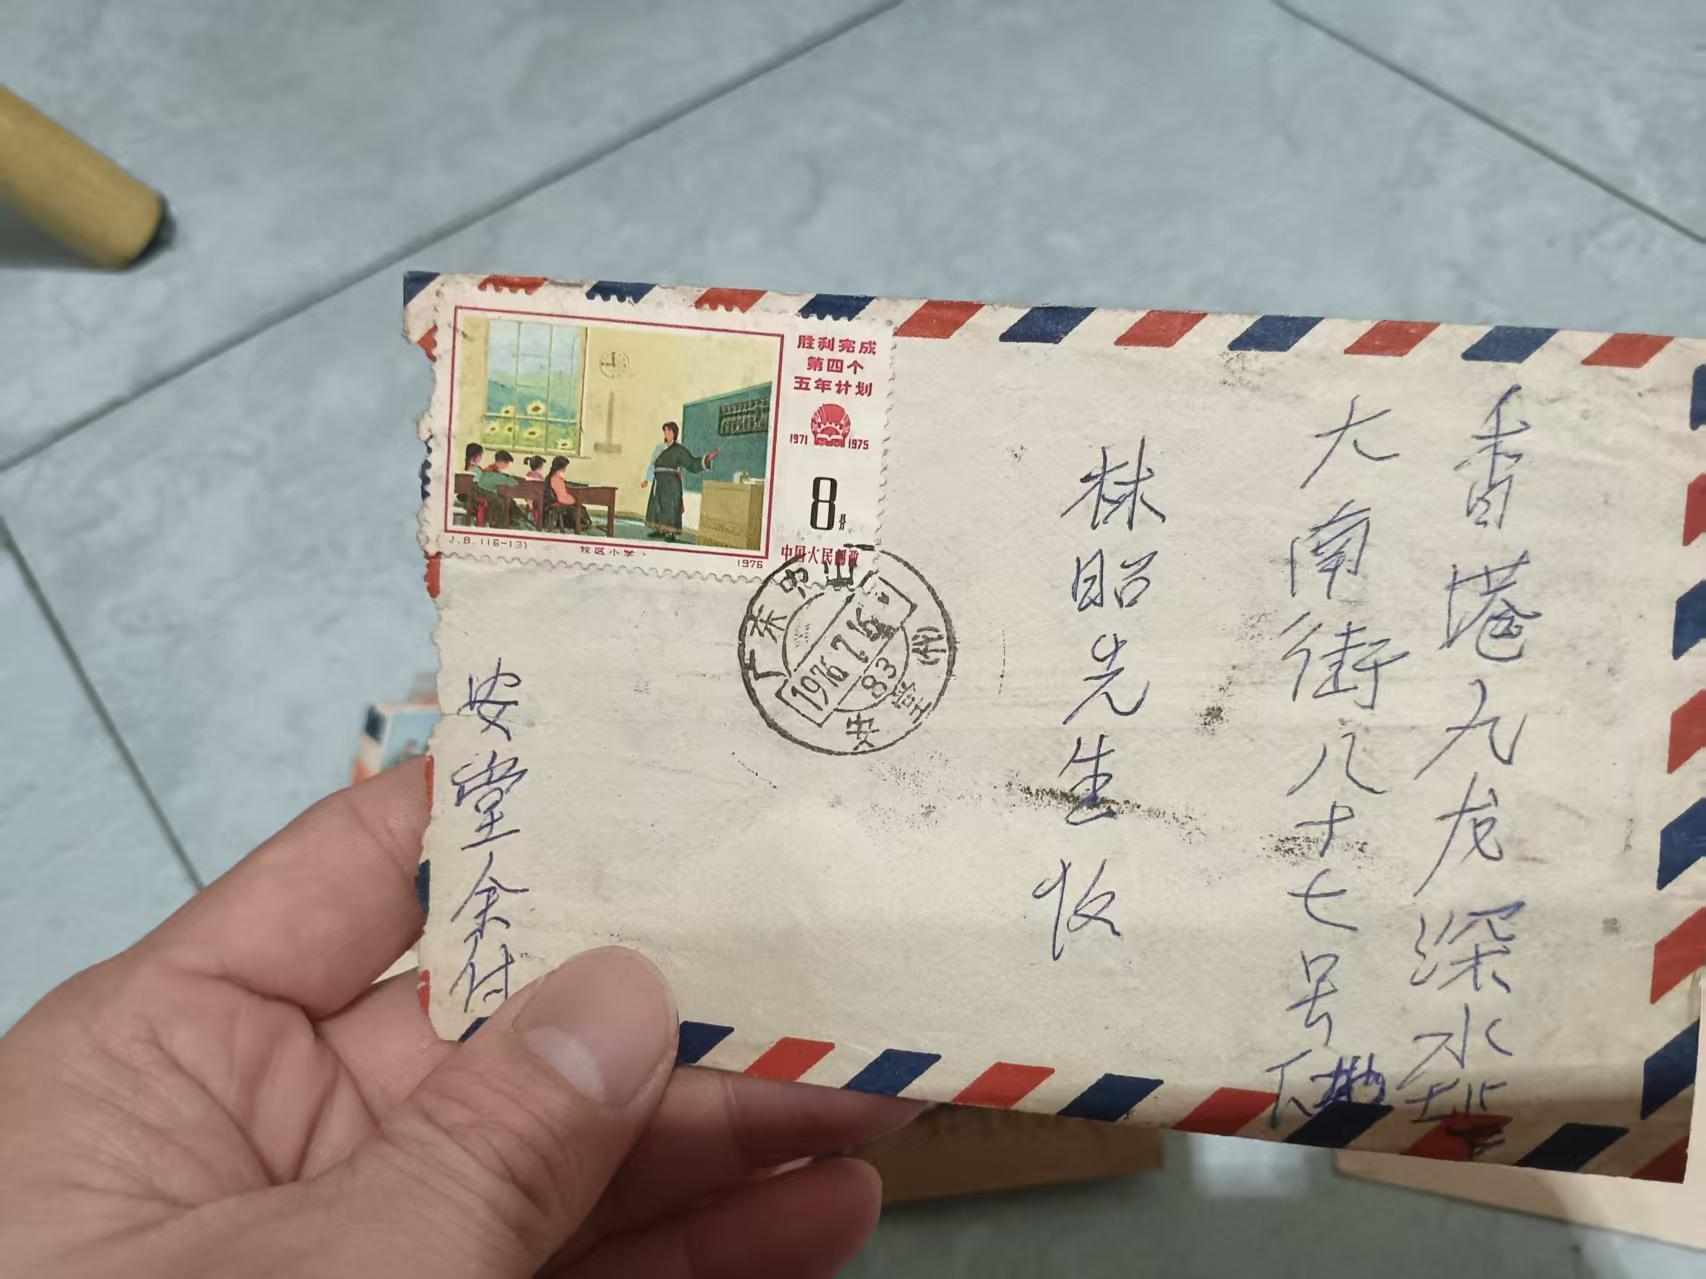 胜利完成
第四个
五年计划
1971 1975
8分
中国人民邮政
J.8.(16-13)
牧区小学
1976
广东中山
1976.7.16
83
安堂
香港九龙深水埗
大南街八十七号
林昭先生收
安堂余付